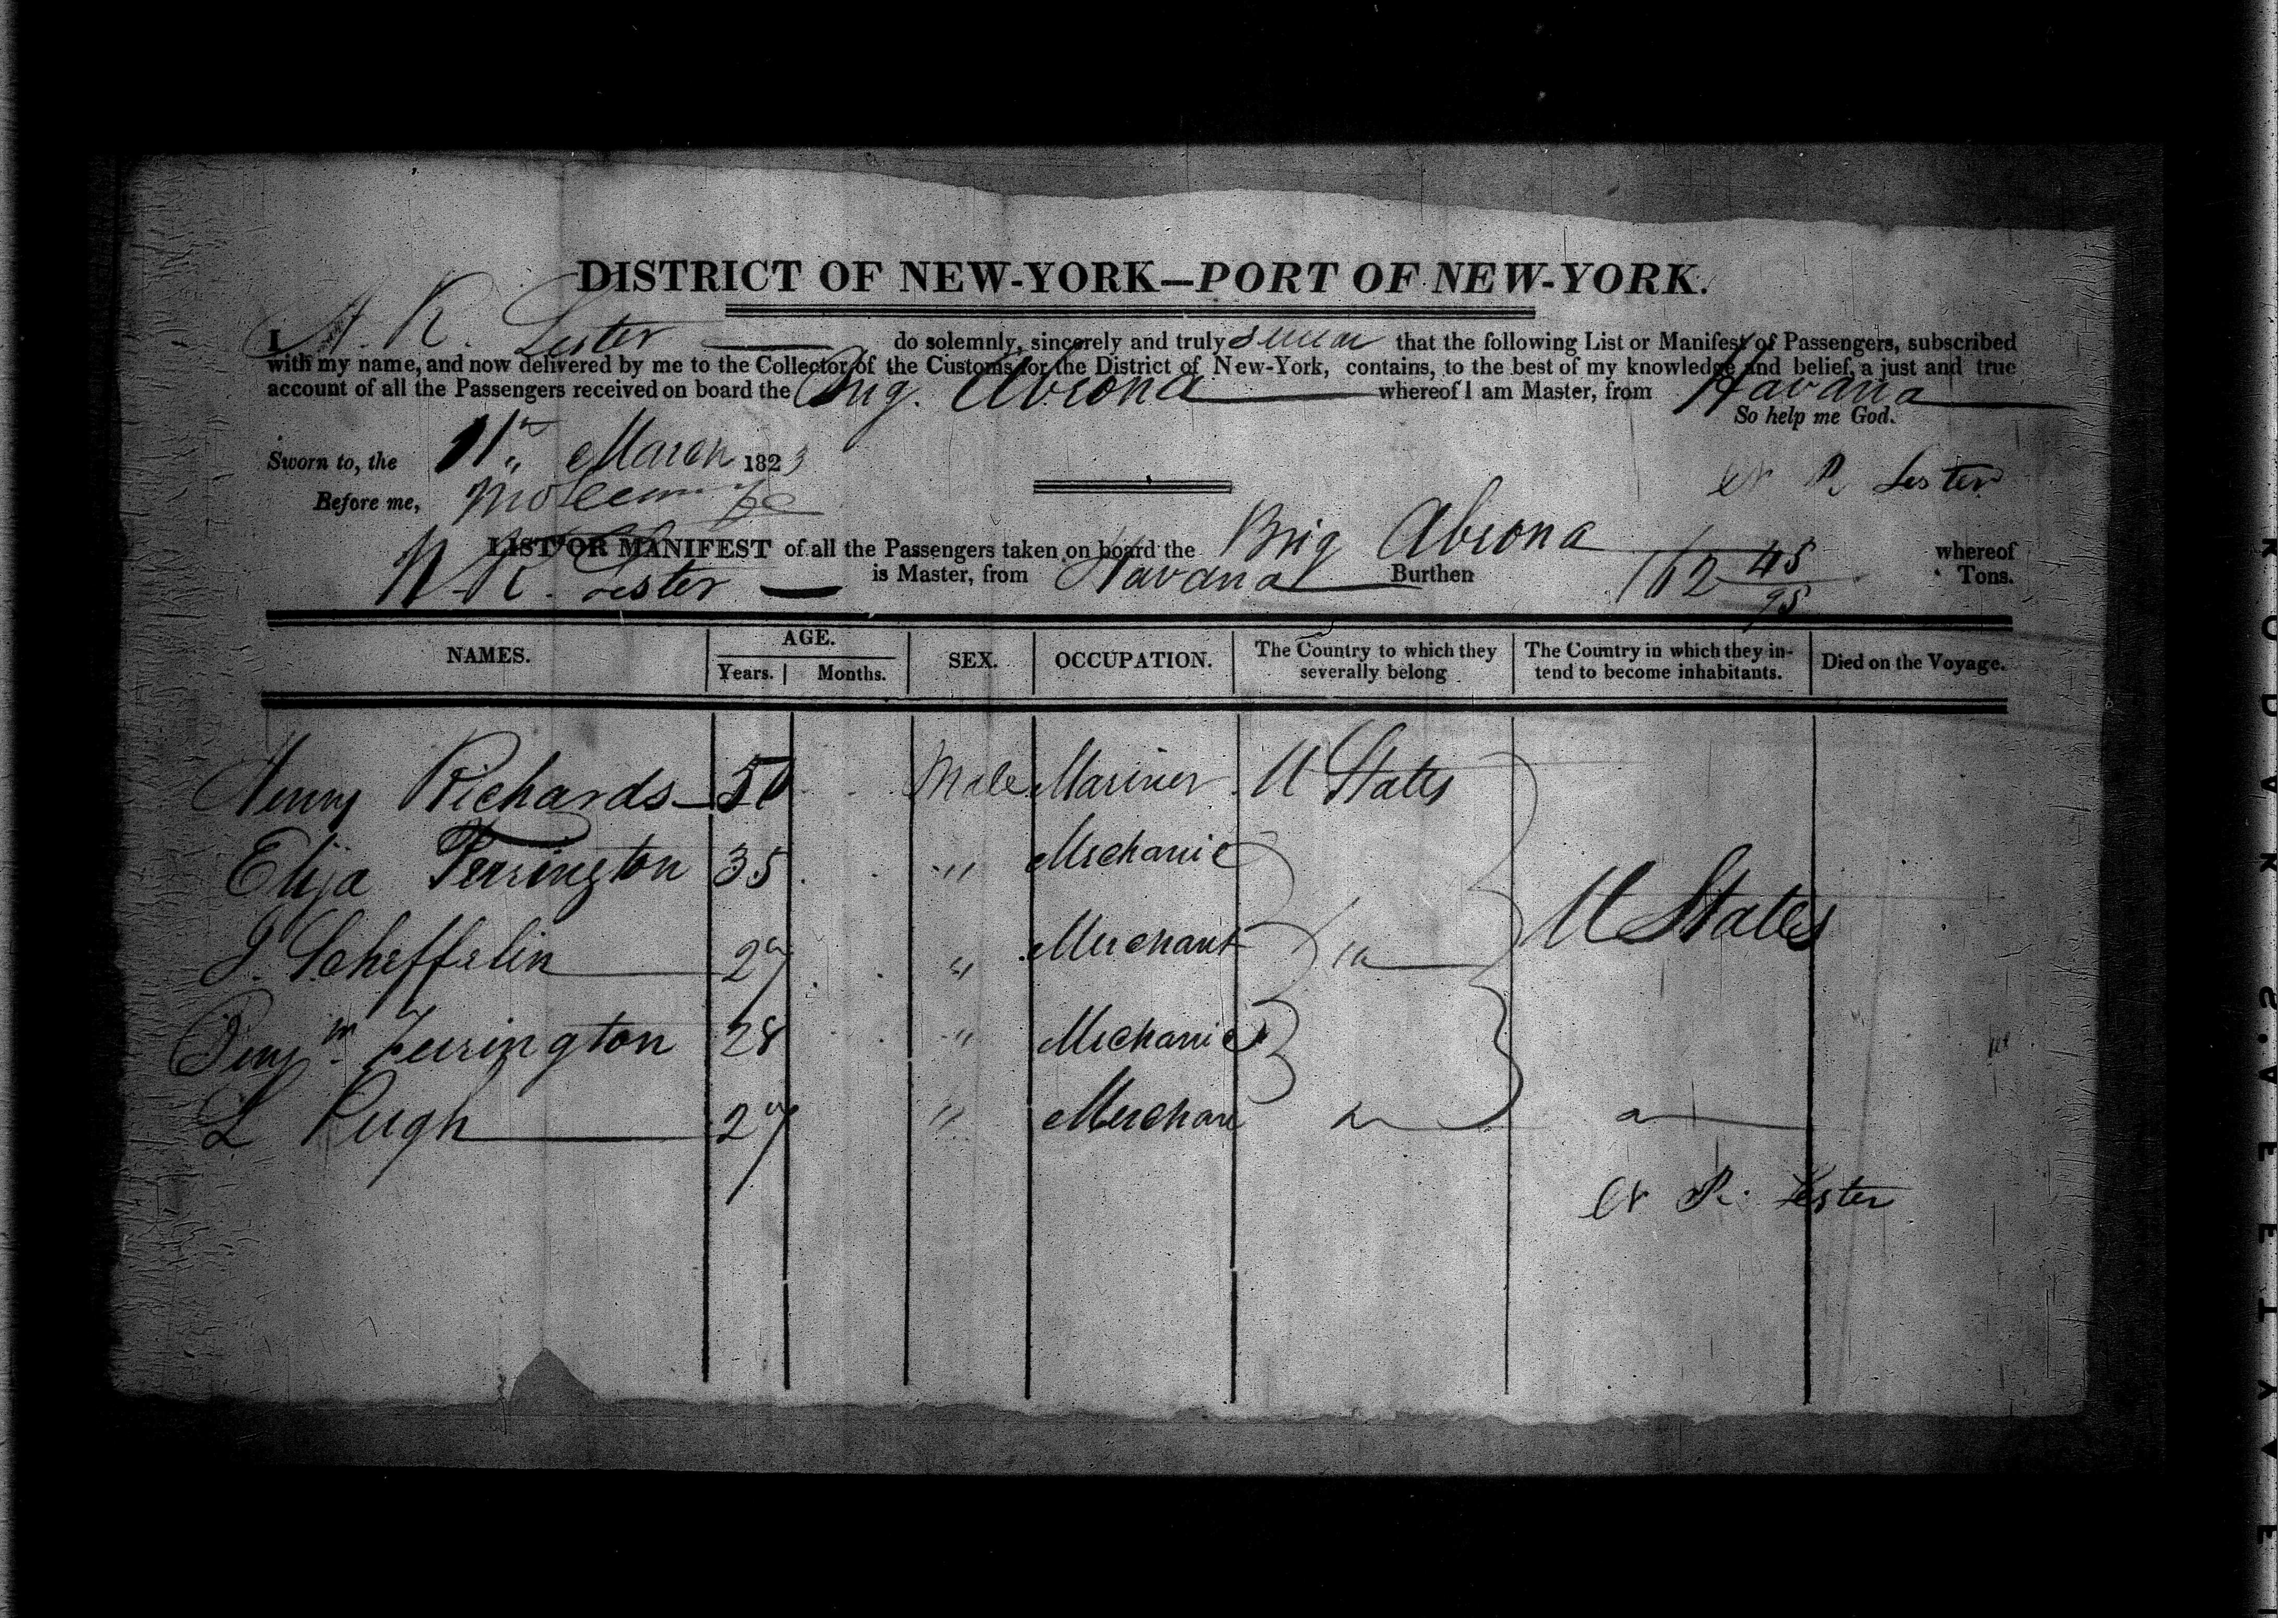 DISTRICT OF NEW-YORK—PORT OF NEW-YORK.
I N. R. Lester do solemnly, sincerely and truly swear that the following List or Manifest of Passengers, subscribed
with my name, and now delivered by me to the Collector of the Customs for the District of New-York, contains, to the best of my knowledge and belief, a just and true
account of all the Passengers received on board the Brig. Abeona whereof I am Master, from Havana
So help me God.
Sworn to, the 11th March 1823
N R Lester
Before me,
LIST OR MANIFEST of all the Passengers taken on board the Brig Abeona whereof
N. R. Lester is Master, from Havana Burthen 162 45/95 Tons.
NAMES. AGE. SEX. OCCUPATION. The Country to which they severally belong The Country in which they intend to become inhabitants. Died on the Voyage.
Years. Months.
Henry Richards 50 Male Mariner U States
Elija Ferrington 35 " Mechanic
J. Scheffelin 27 " Merchant U States
Benjn. Ferrington 28 " Mechanic
L Pugh 27 " Merchan
N R. Lester
KODAK SAFETY